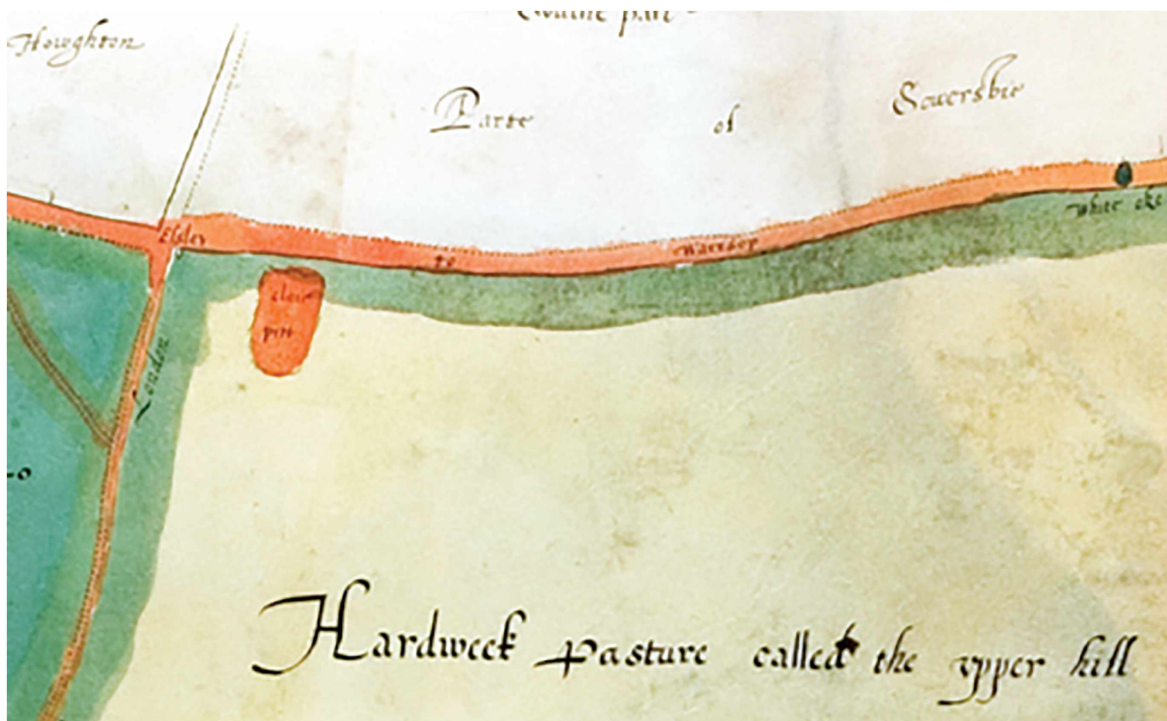 Howghton
Parte of Sowersbie
White oke
to Waresop
claie
pitt
London
Hardweek pasture called the vpper hill